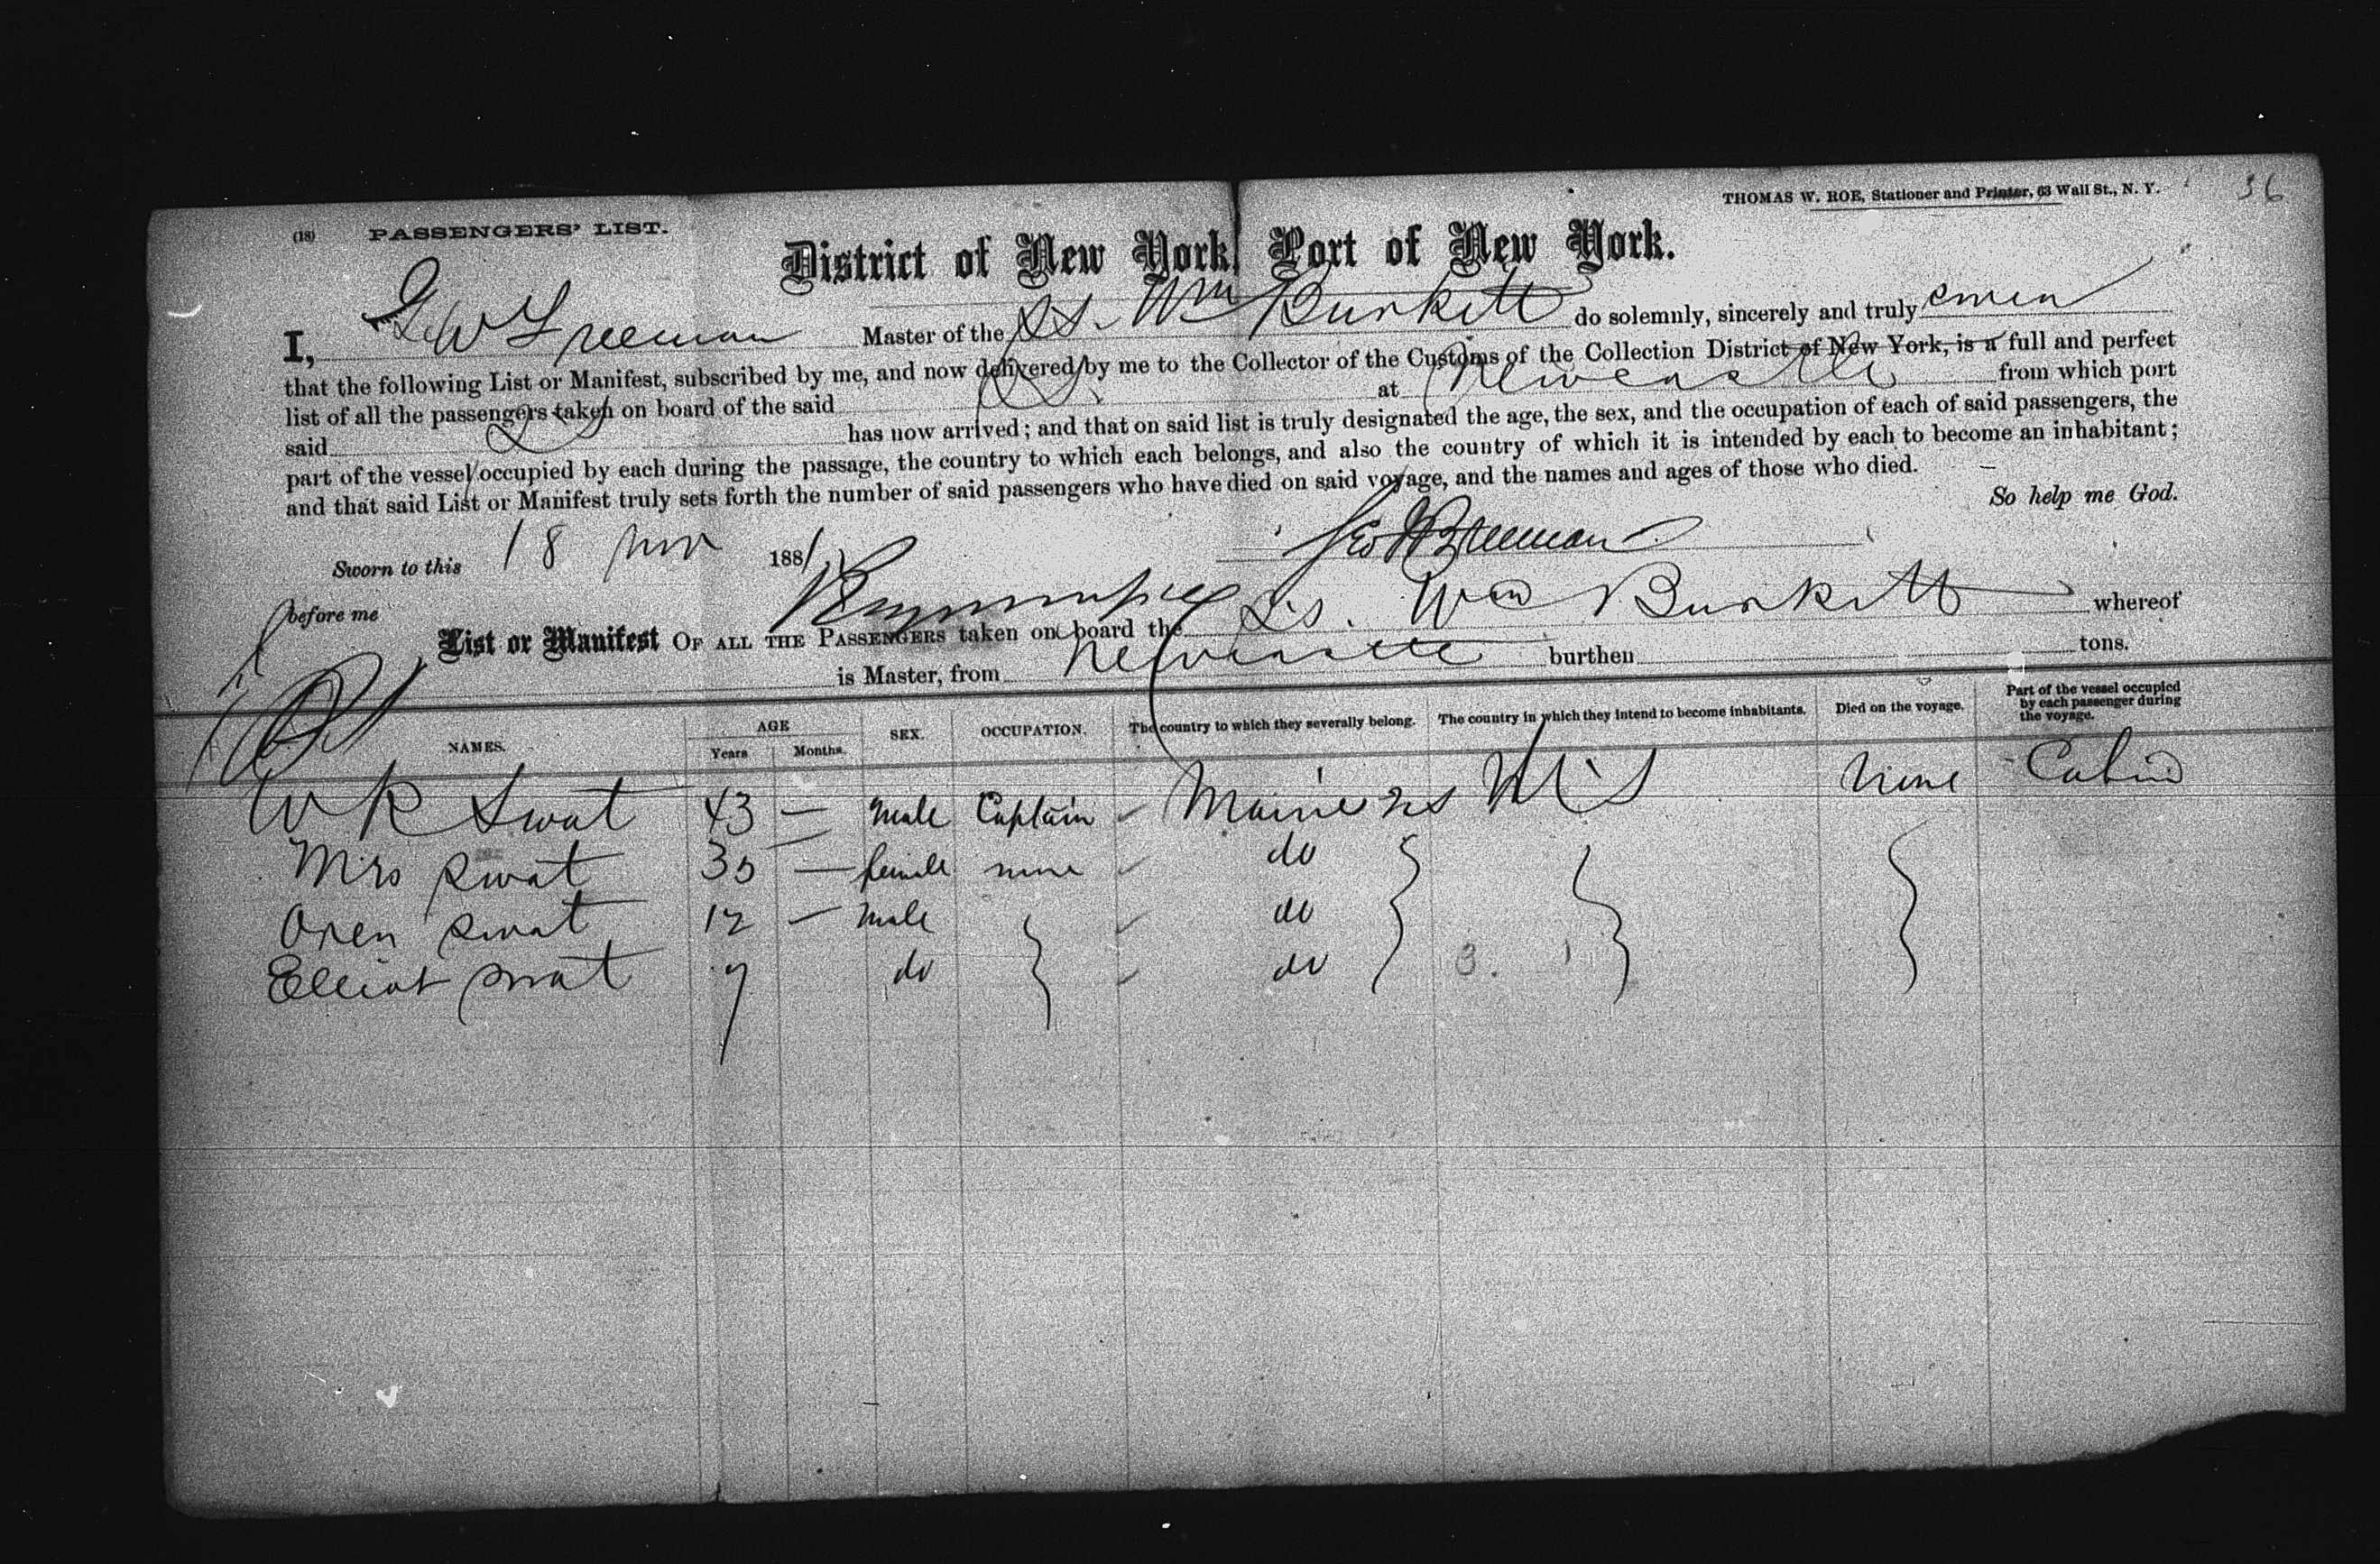 THOMAS W. ROE, Stationer and Printer, 63 Wall St., N. Y. 36
(18) PASSENGERS' LIST.
District of New York, Port of New York.
I, G W Freeman Master of the SS. Wm Burkitt do solemnly, sincerely and truly
that the following List or Manifest, subscribed by me, and now delivered by me to the Collector of the Customs of the Collection District of New York, is a full and perfect
list of all the passengers taken on board of the said SS. at Newcastle from which port
said SS has now arrived; and that on said list is truly designated the age, the sex, and the occupation of each of said passengers, the
part of the vessel occupied by each during the passage, the country to which each belongs, and also the country of which it is intended by each to become an inhabitant;
and that said List or Manifest truly sets forth the number of said passengers who have died on said voyage, and the names and ages of those who died.
So help me God.
Sworn to this 18 Nov 1881 Geo W Freeman
before me
List or Manifest OF ALL THE PASSENGERS taken on board the S.S. Wm Burkitt whereof
is Master, from Newcastle burthen tons.
NAMES. AGE Years Months. SEX. OCCUPATION. The country to which they severally belong. The country in which they intend to become inhabitants. Died on the voyage. Part of the vessel occupied by each passenger during the voyage.
W R Swat 43 — Male Captain Maine US None Cabin
Mrs Swat 35 — female none do
Oren Swat 12 — Male do
Elliot Swat 9 do do 3.